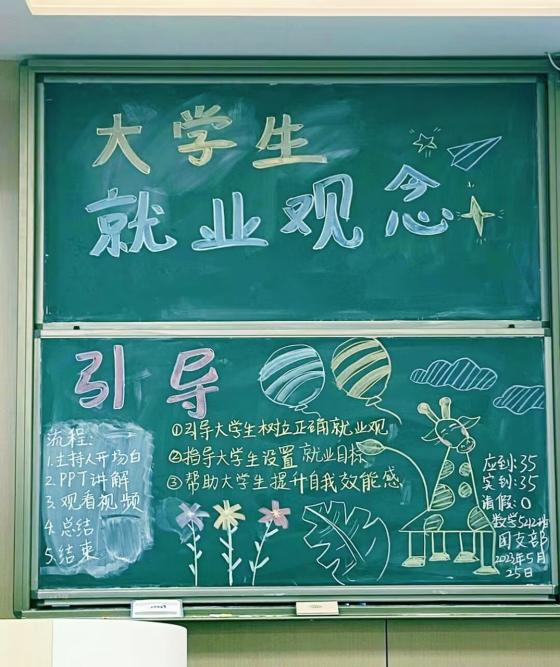 大学生
就业观念
引导
流程:
1.主持人开场白
2.PPT讲解
3.观看视频
4.总结
5.结束
①引导大学生树立正确就业观
②指导大学生设置就业目标
③帮助大学生提升自我效能感
应到:35
实到:35
请假:0
数学2212班
团支部
2023年5月
25日